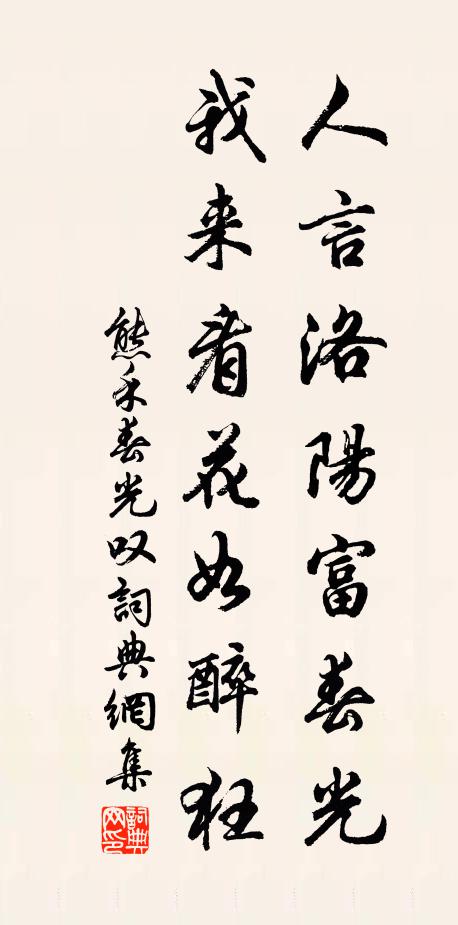 人言洛陽富春光
我来看花如醉狂
熊禾春光叹詞典網集
詞典網印